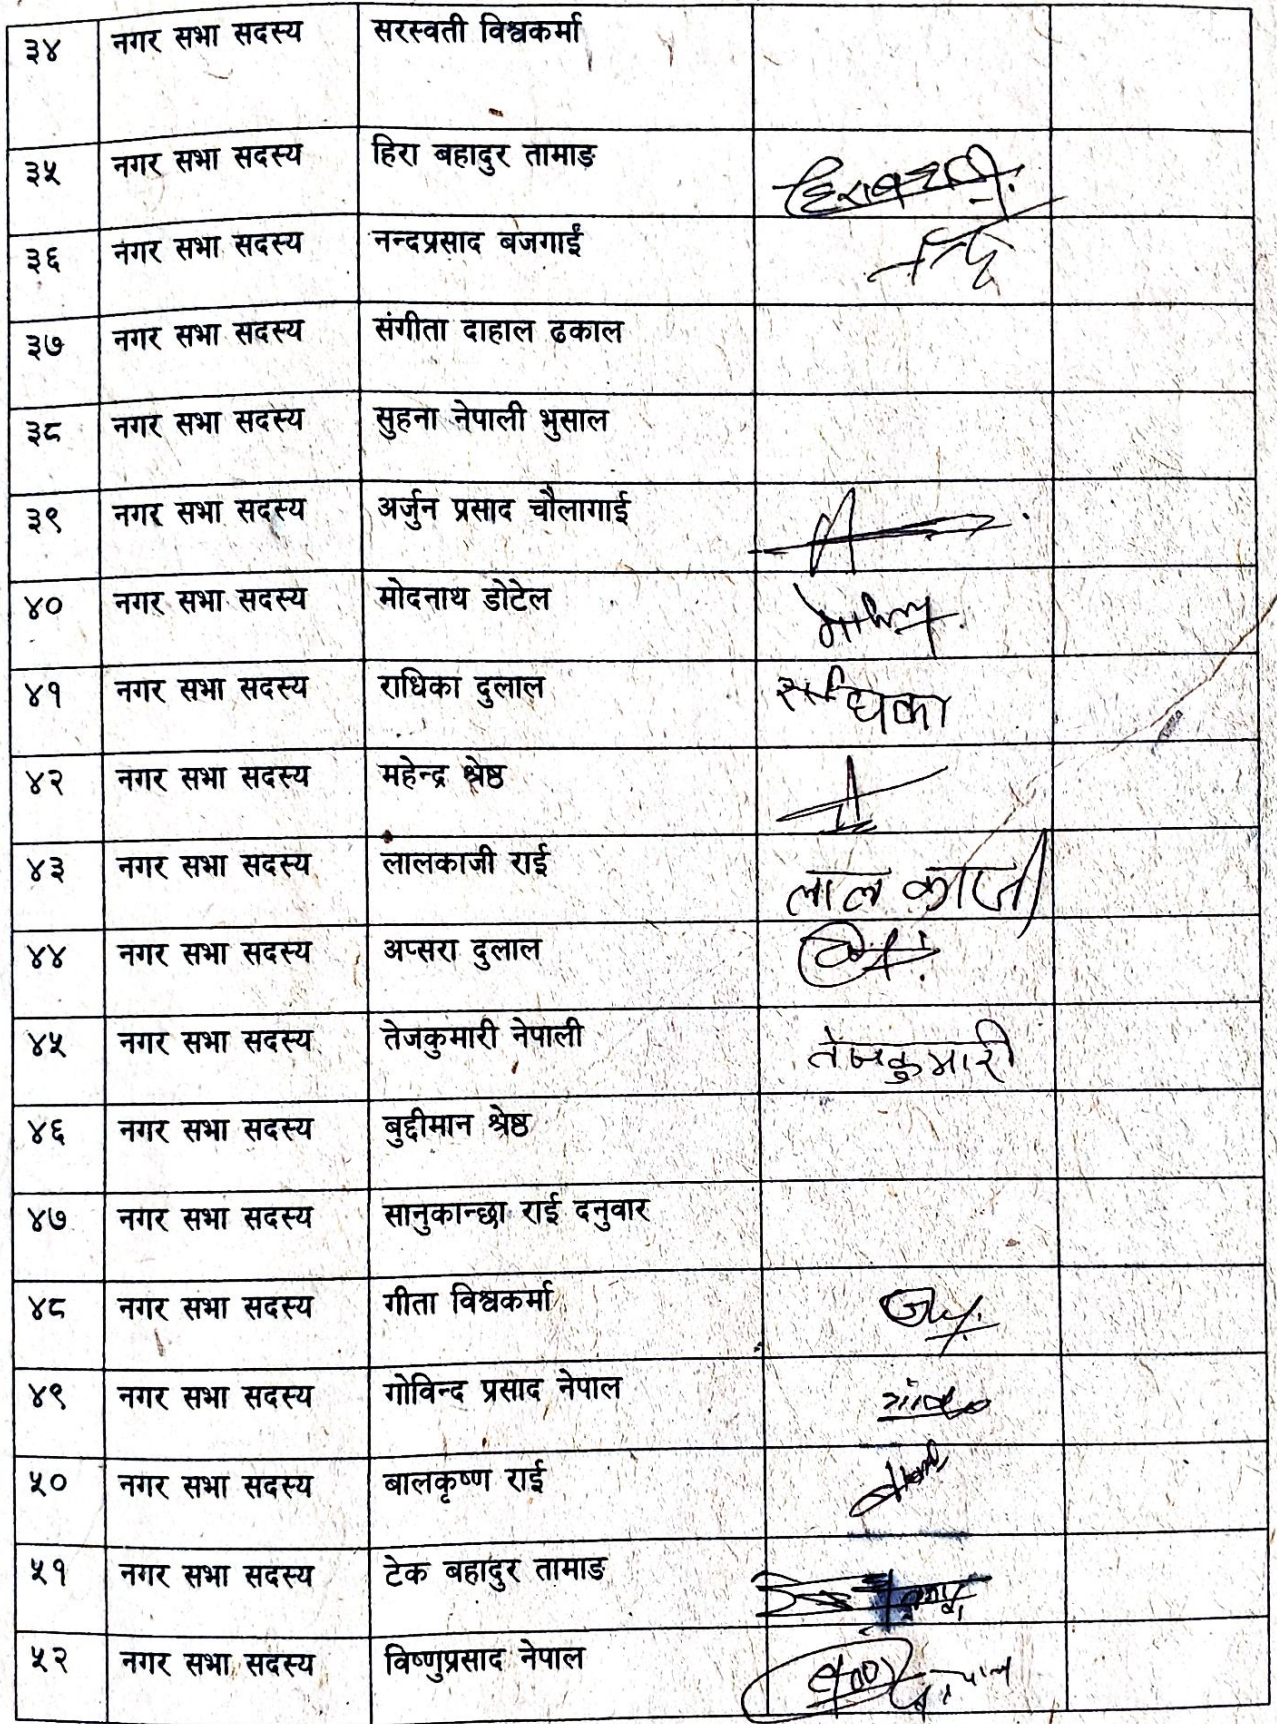 ३४ नगर सभा सदस्य सरस्वती विश्वकर्मा
३५ नगर सभा सदस्य हिरा बहादुर तामाङ
३६ नगर सभा सदस्य नन्दप्रसाद बजगाईं
३७ नगर सभा सदस्य संगीता दाहाल ढकाल
३८ नगर सभा सदस्य सुहना नेपाली भुसाल
३९ नगर सभा सदस्य अर्जुन प्रसाद चौलागाई
४० नगर सभा सदस्य मोदनाथ डोटेल
४१ नगर सभा सदस्य राधिका दुलाल राधिका
४२ नगर सभा सदस्य महेन्द्र श्रेष्ठ
४३ नगर सभा सदस्य लालकाजी राई लाल काजी
४४ नगर सभा सदस्य अप्सरा दुलाल
४५ नगर सभा सदस्य तेजकुमारी नेपाली तेजकुमारी
४६ नगर सभा सदस्य बुद्दीमान श्रेष्ठ
४७ नगर सभा सदस्य सानुकान्छा राई दनुवार
४८ नगर सभा सदस्य गीता विश्वकर्मा
४९ नगर सभा सदस्य गोविन्द प्रसाद नेपाल
५० नगर सभा सदस्य बालकृष्ण राई
५१ नगर सभा सदस्य टेक बहादुर तामाङ
५२ नगर सभा सदस्य विष्णुप्रसाद नेपाल